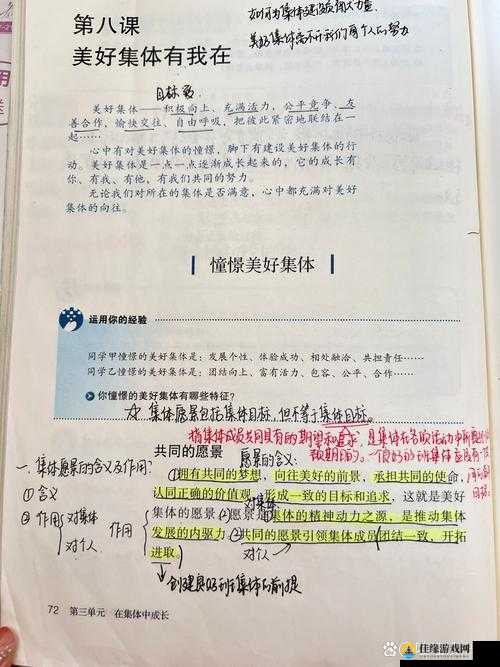 第八课
如何为集体建设贡献力量
美好集体有我在
美好集体离不开我们每个人的努力
目标
美好集体——积极向上、充满活力，公平竞争、友
善合作，愉快交往、自由呼吸，把彼此紧密地联结在一
起……
心中有对美好集体的憧憬，脚下有建设美好集体的行
动。美好集体是一点一点逐渐成长起来的，它的成长有
你、有我、有他，有我们共同的努力。
无论我们对所在的集体是否满意，心中都充满对美好
集体的向往。
憧憬美好集体
运用你的经验
同学甲憧憬的美好集体是：发展个性、体验成功、相处融洽、共担责任……
同学乙憧憬的美好集体是：团结向上、富有活力、包容、公平、合作……
你憧憬的美好集体有哪些特征？
☆ 集体愿景包括集体目标，但不等于集体目标。
指集体成员共同具有的期望和追求，是集体在各项活动中所要
预期目的。
共同的愿景
愿景的含义：
一.集体愿景的含义及作用？
①拥有共同的梦想，向往美好的前景，承担共同的使命，
①含义
认同正确的价值观，形成一致的目标和追求，这就是美好
对集体
②作用 对集体 对个人
作用
集体的愿景。②愿景是集体的精神动力之源，是推动集体
发展的内驱力。②共同的愿景引领集体成员团结一致、开拓
进取。
对个人
创建良好班集体的前提
72 第三单元 在集体中成长
佳缘游戏网